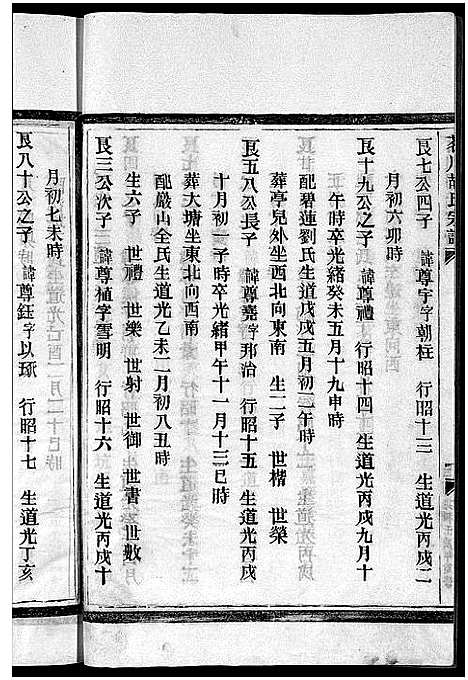 茶川胡氏宗譜
良七公四子 諱尊宇字朝柱 行昭十三 生道光丙戌二
月初六卯時
良十九公之子 諱尊禮 行昭十四 生道光丙戌九月十
午時卒光緒癸未五月十九申時
配碧蓮劉氏生道光戊戌五月初二午時
葬亭兒外坐西北向東南 生二子 世楷 世榮
良五八公長子 諱尊嘉字邦治 行昭十五 生道光丙戌
十月初一子時卒光緒甲午十一月十三巳時
葬大塘坐東北向西南
配嚴山全氏生道光乙未二月初八丑時
生六子 世禮 世樂 世射 世御 世書 世數
良三公次子 諱尊植字雪明 行昭十六 生道光丙戌十
月初七未時
良八十公之子 諱尊鈺字以琢 行昭十七 生道光丁亥